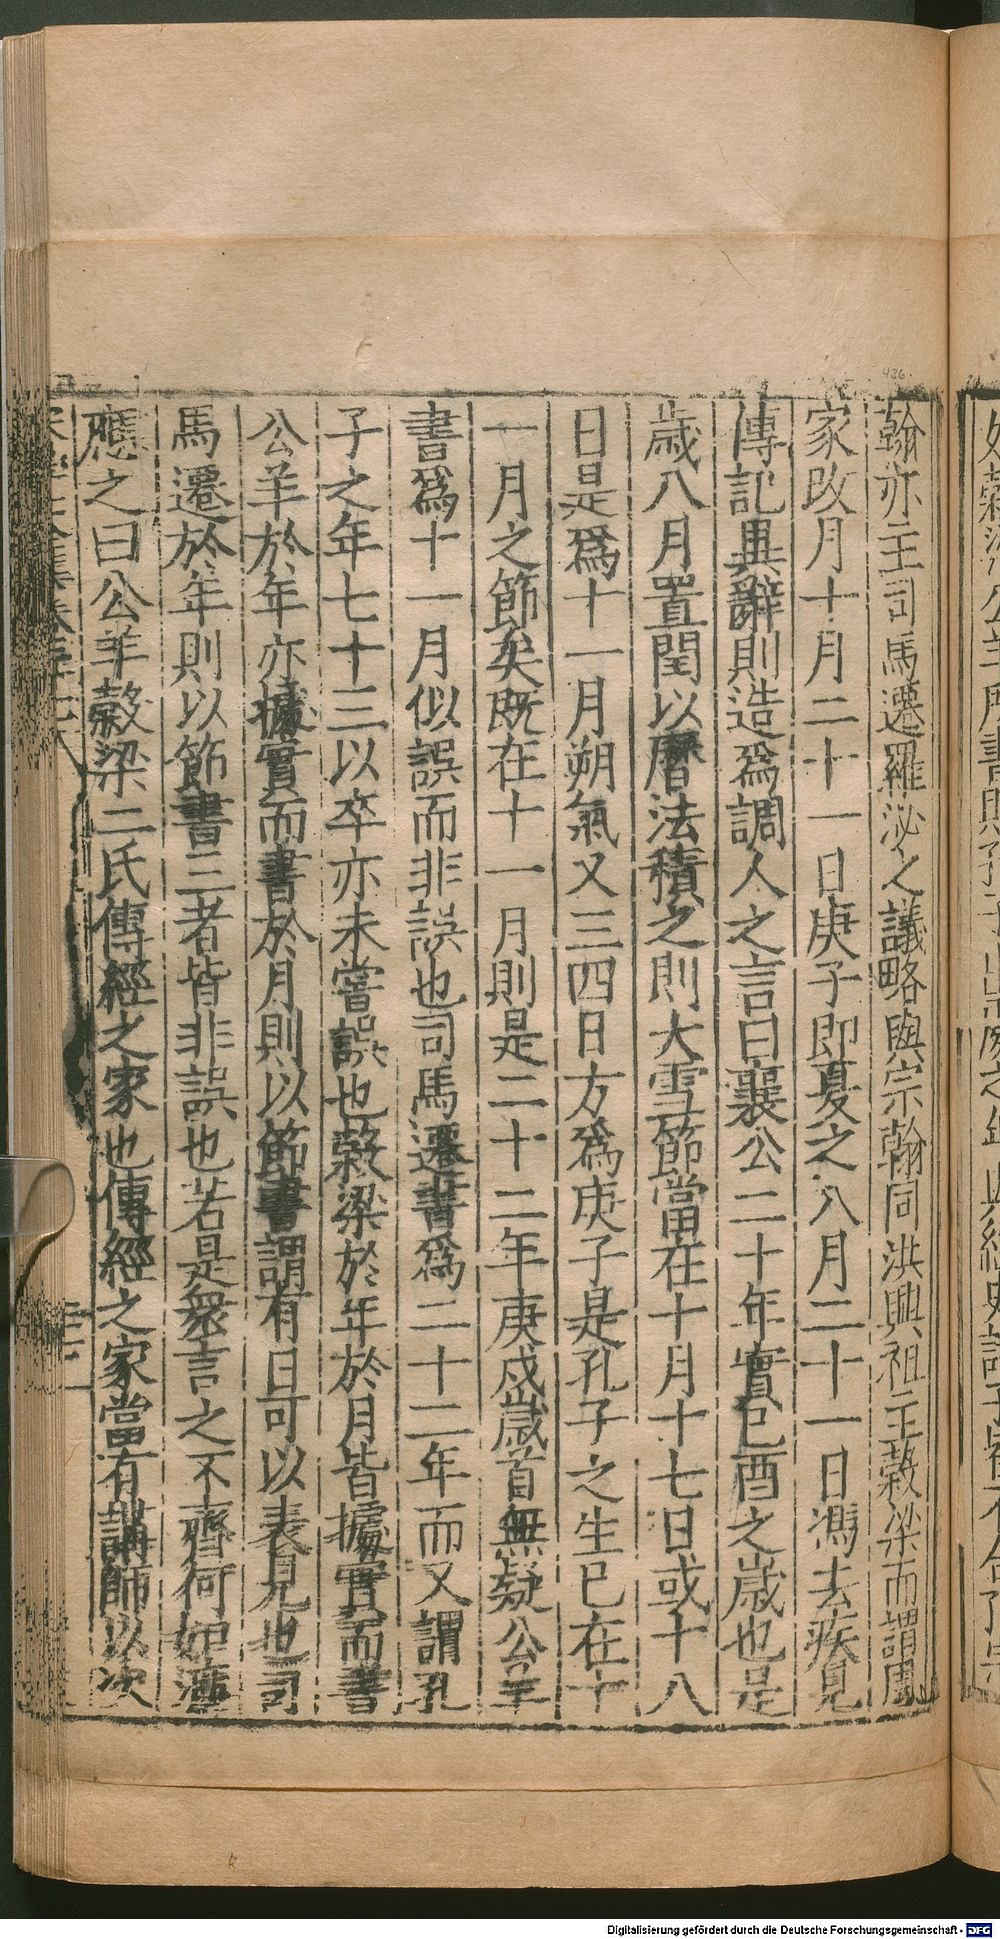 翰亦主司馬遷羅泌之議略與宗翰同洪興祖主穀梁而謂周
家改月十月二十一日庚子即夏之八月二十一日馮去疾見
傳記異辭則造爲調人之言曰襄公二十年實己酉之歲也是
歲八月置閏以曆法積之則大雪節當在十月十七日或十八
日是爲十一月朔氣又三四日方爲庚子是孔子之生已在十
一月之節矣既在十一月則是二十二年庚戍歲首無疑公羊
書爲十一月似誤而非誤也司馬遷書爲二十二年而又謂孔
子之年七十三以卒亦未嘗誤也穀梁於年於月皆據實而書
公羊於年亦據實而書於月則以節書謂有日可以表見也司
馬遷於年則以節書三者皆非誤也若是衆言之不齊何如濂
應之曰公羊穀梁二氏傳經之家也傳經之家當有講師以次
436
Digitalisierung gefördert durch die Deutsche Forschungsgemeinschaft - DFG